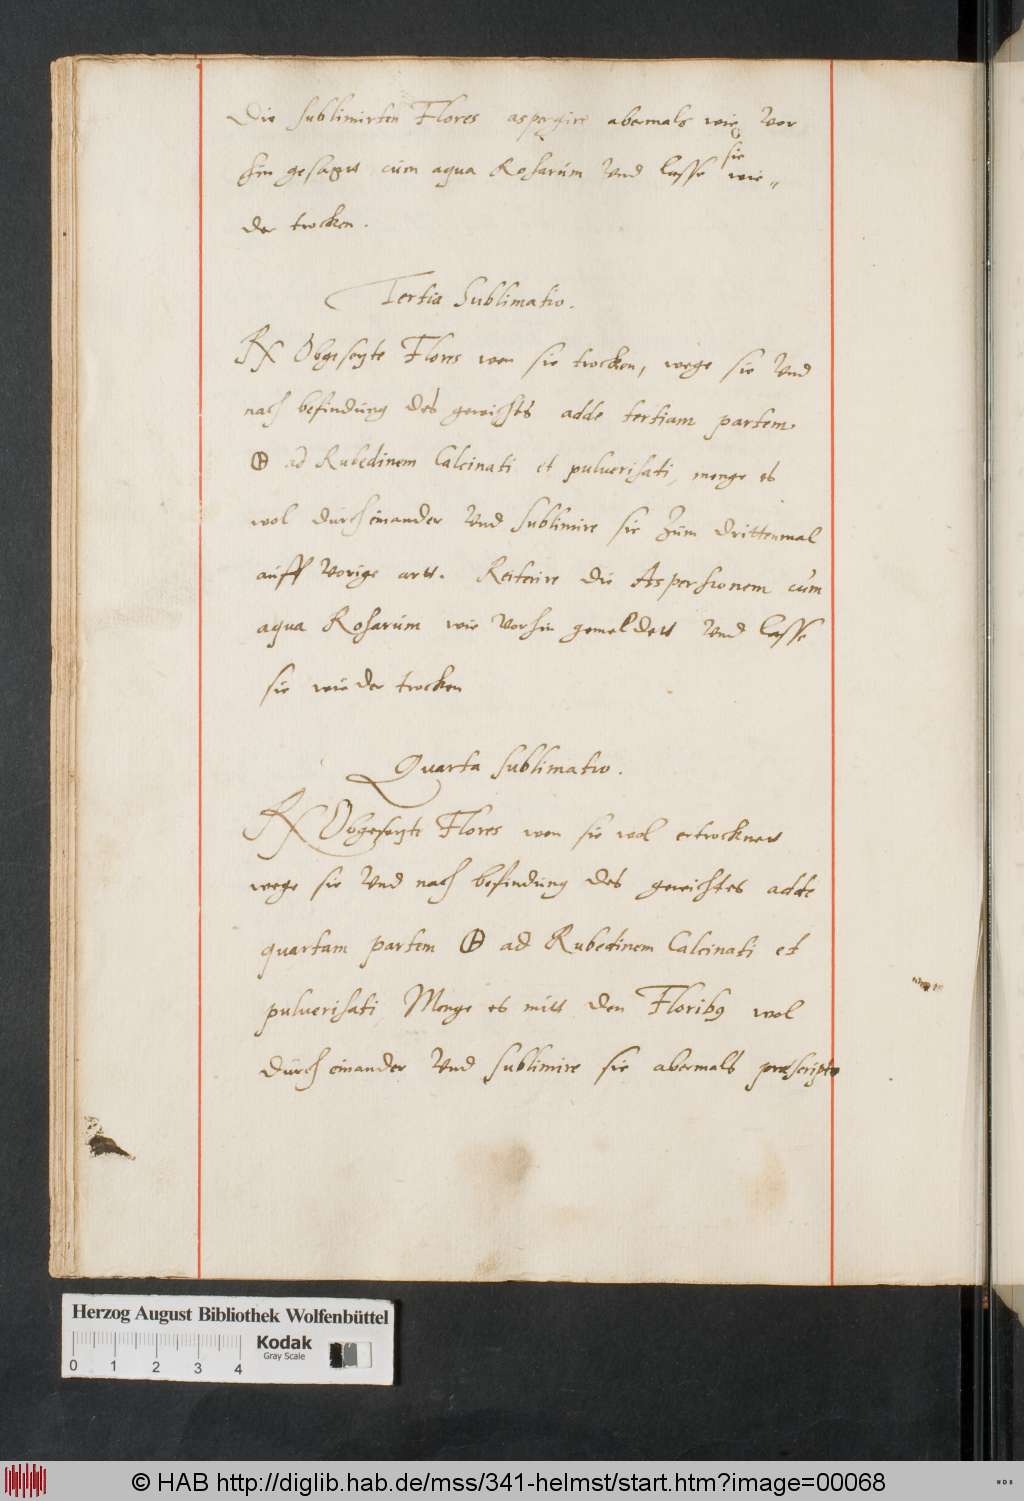 Die sublimirten Flores aspergire abermals wie vor
hin gesagtt cúm aqua Rosarúm vnd lasse sie wie„
der trocken.
Tertia Sublimatio.
℞ Obgesezte Flores wen sie trocken, wege sie vnd
nach befindúng des gewichts adde tertiam partem.
🜨 ad Rubedinem Calcinati et pulverisati, menge es
wol dúrch einander vnd sublimire sie zúm drittenmal
aúff vorige artt. Reiterire die Aspersionem cúm
aqua Rosarúm wie vorhin gemeldett vnd lasse
sie wieder trocken
Quarta Sublimatio.
℞ Obgesezte Flores wen sie wol ertrocknett
wege sie vnd nach befindúng des gewichtes adde
quartam partem 🜨 ad Rubedinem Calcinati et
pulverisati, Menge es mitt den Florib9 wol
dúrch einander vnd sublimire sie abermals præscripto
Herzog August Bibliothek Wolfenbüttel
Kodak
Gray Scale
0 1 2 3 4
© HAB http://diglib.hab.de/mss/341-helmst/start.htm?image=00068